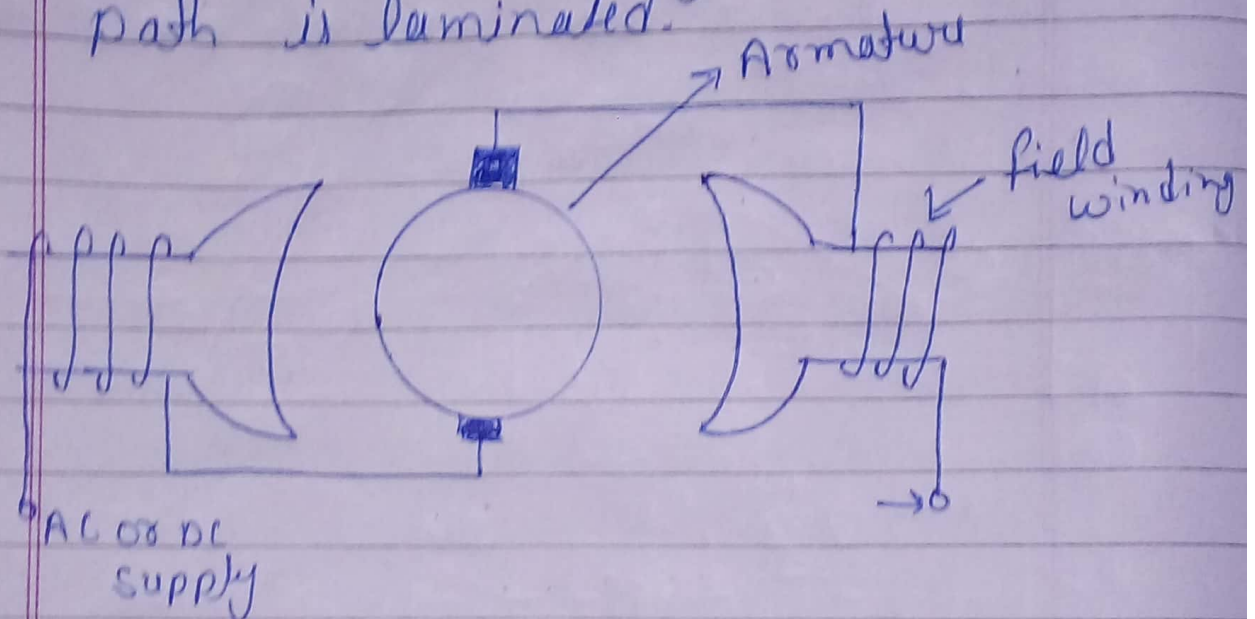 path is laminated.
Armature
field
winding
AC or DC
supply